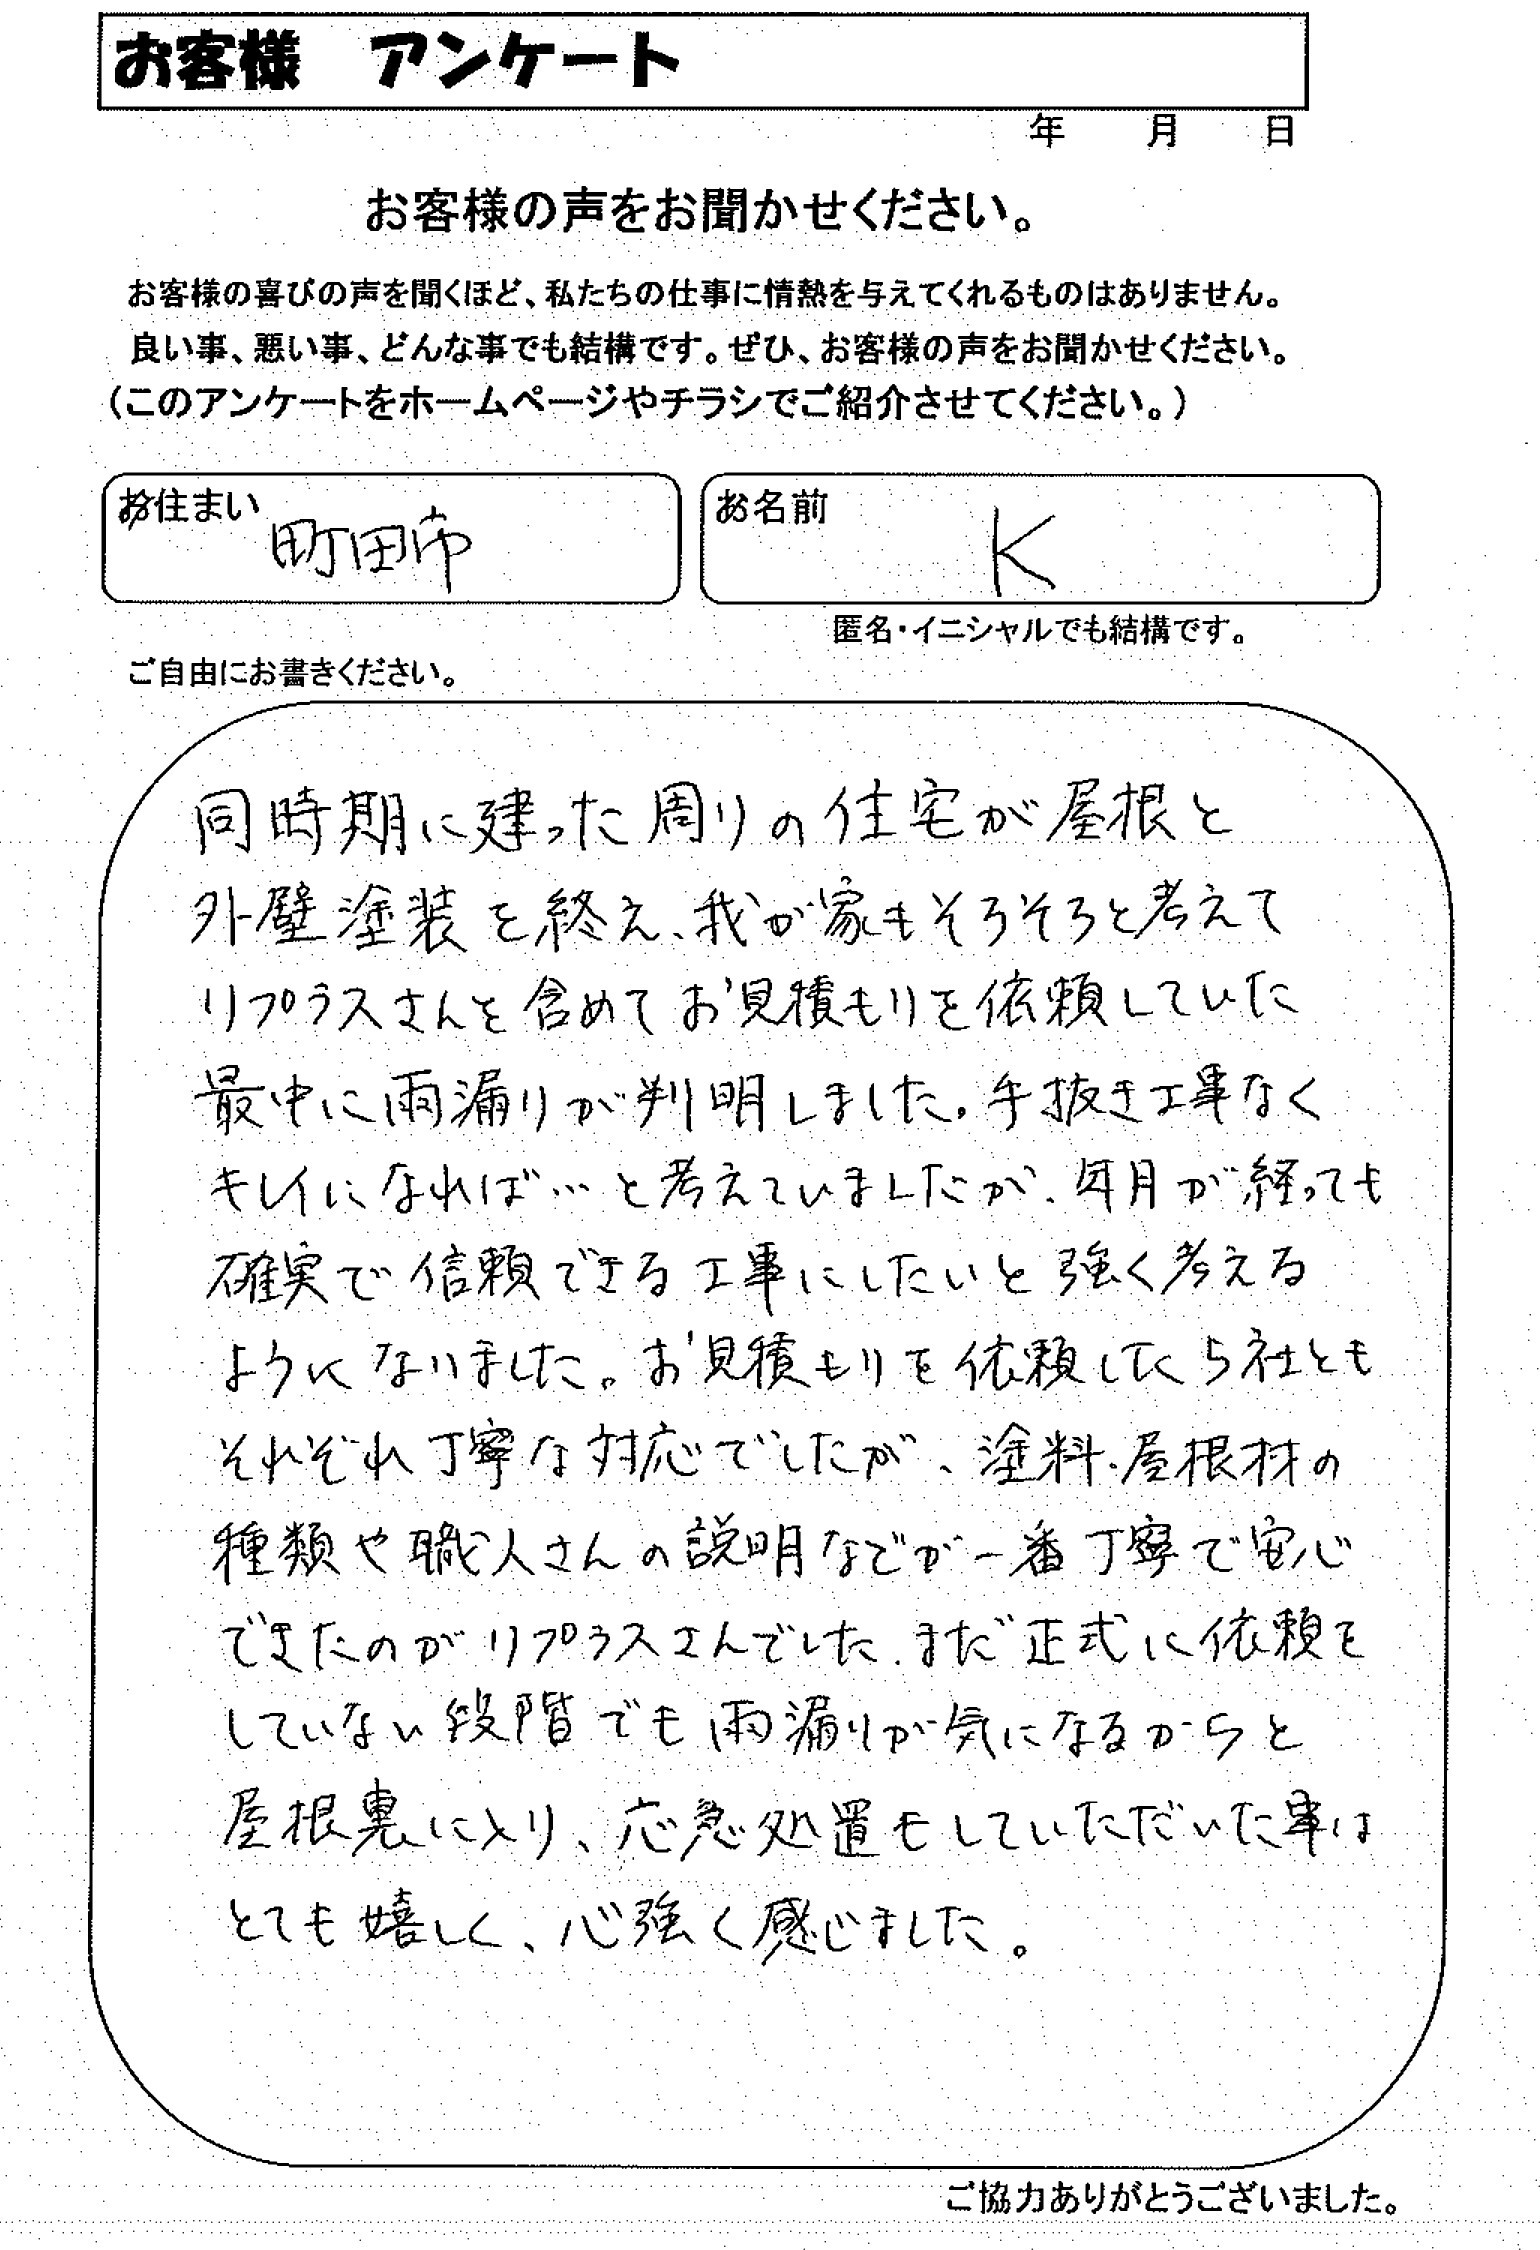 お客様　アンケート
年　月　日
お客様の声をお聞かせください。
お客様の喜びの声を聞くほど、私たちの仕事に情熱を与えてくれるものはありません。
良い事、悪い事、どんな事でも結構です。ぜひ、お客様の声をお聞かせください。
（このアンケートをホームページやチラシでご紹介させてください。）
お住まい　町田市
お名前　K
匿名・イニシャルでも結構です。
ご自由にお書きください。
同時期に建った周りの住宅が屋根と
外壁塗装を終え、我が家もそろそろと考えて
リプラスさんを含めてお見積もりを依頼していた
最中に雨漏りが判明しました。手抜き工事なく
キレイになれば…と考えていましたが、年月が経っても
確実で信頼できる工事にしたいと強く考える
ようになりました。お見積もりを依頼した5社とも
それぞれ丁寧な対応でしたが、塗料・屋根材の
種類や職人さんの説明などが一番丁寧で安心
できたのがリプラスさんでした。まだ正式に依頼を
していない段階でも雨漏りが気になるからと
屋根裏に入り、応急処置もしていただいた事は
とても嬉しく、心強く感じました。
ご協力ありがとうございました。